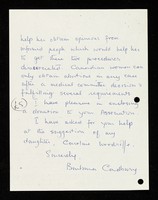 help her obtain opinions from
informed people which would help her
to get these two procedures
Canadian women can
only obtain abortions in any case
after a medical committee decision &
fulfilling several requirements
I have pleasure in enclosing
a donation to your Association
I have asked for your help
at the suggestion of my
daughter Caroline
Sincerely,
Barbara